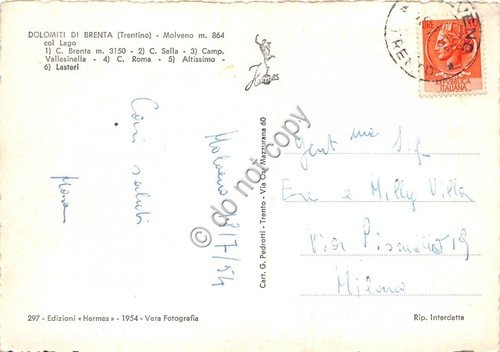 DOLOMITI DI BRENTA (Trentino) - Molveno m. 864
col Lago
1) C. Brenta m. 3150 - 2) C. Sella - 3) Camp.
Vallesinella - 4) C. Roma - 5) Altissimo -
6) Lasteri
Hermes
MOLVENO
TRENTO
REPUBBLICA
ITALIANA
Cari saluti
Molveno 18/7/54
do not copy
Cart. G. Pedrotti - Trento - Via Oss Mazzurana 60
Gent me Sig.
e Milly Villa
Via 19
Milano
297 - Edizioni « Hermes » - 1954 - Vera Fotografia
Rip. Interdetta